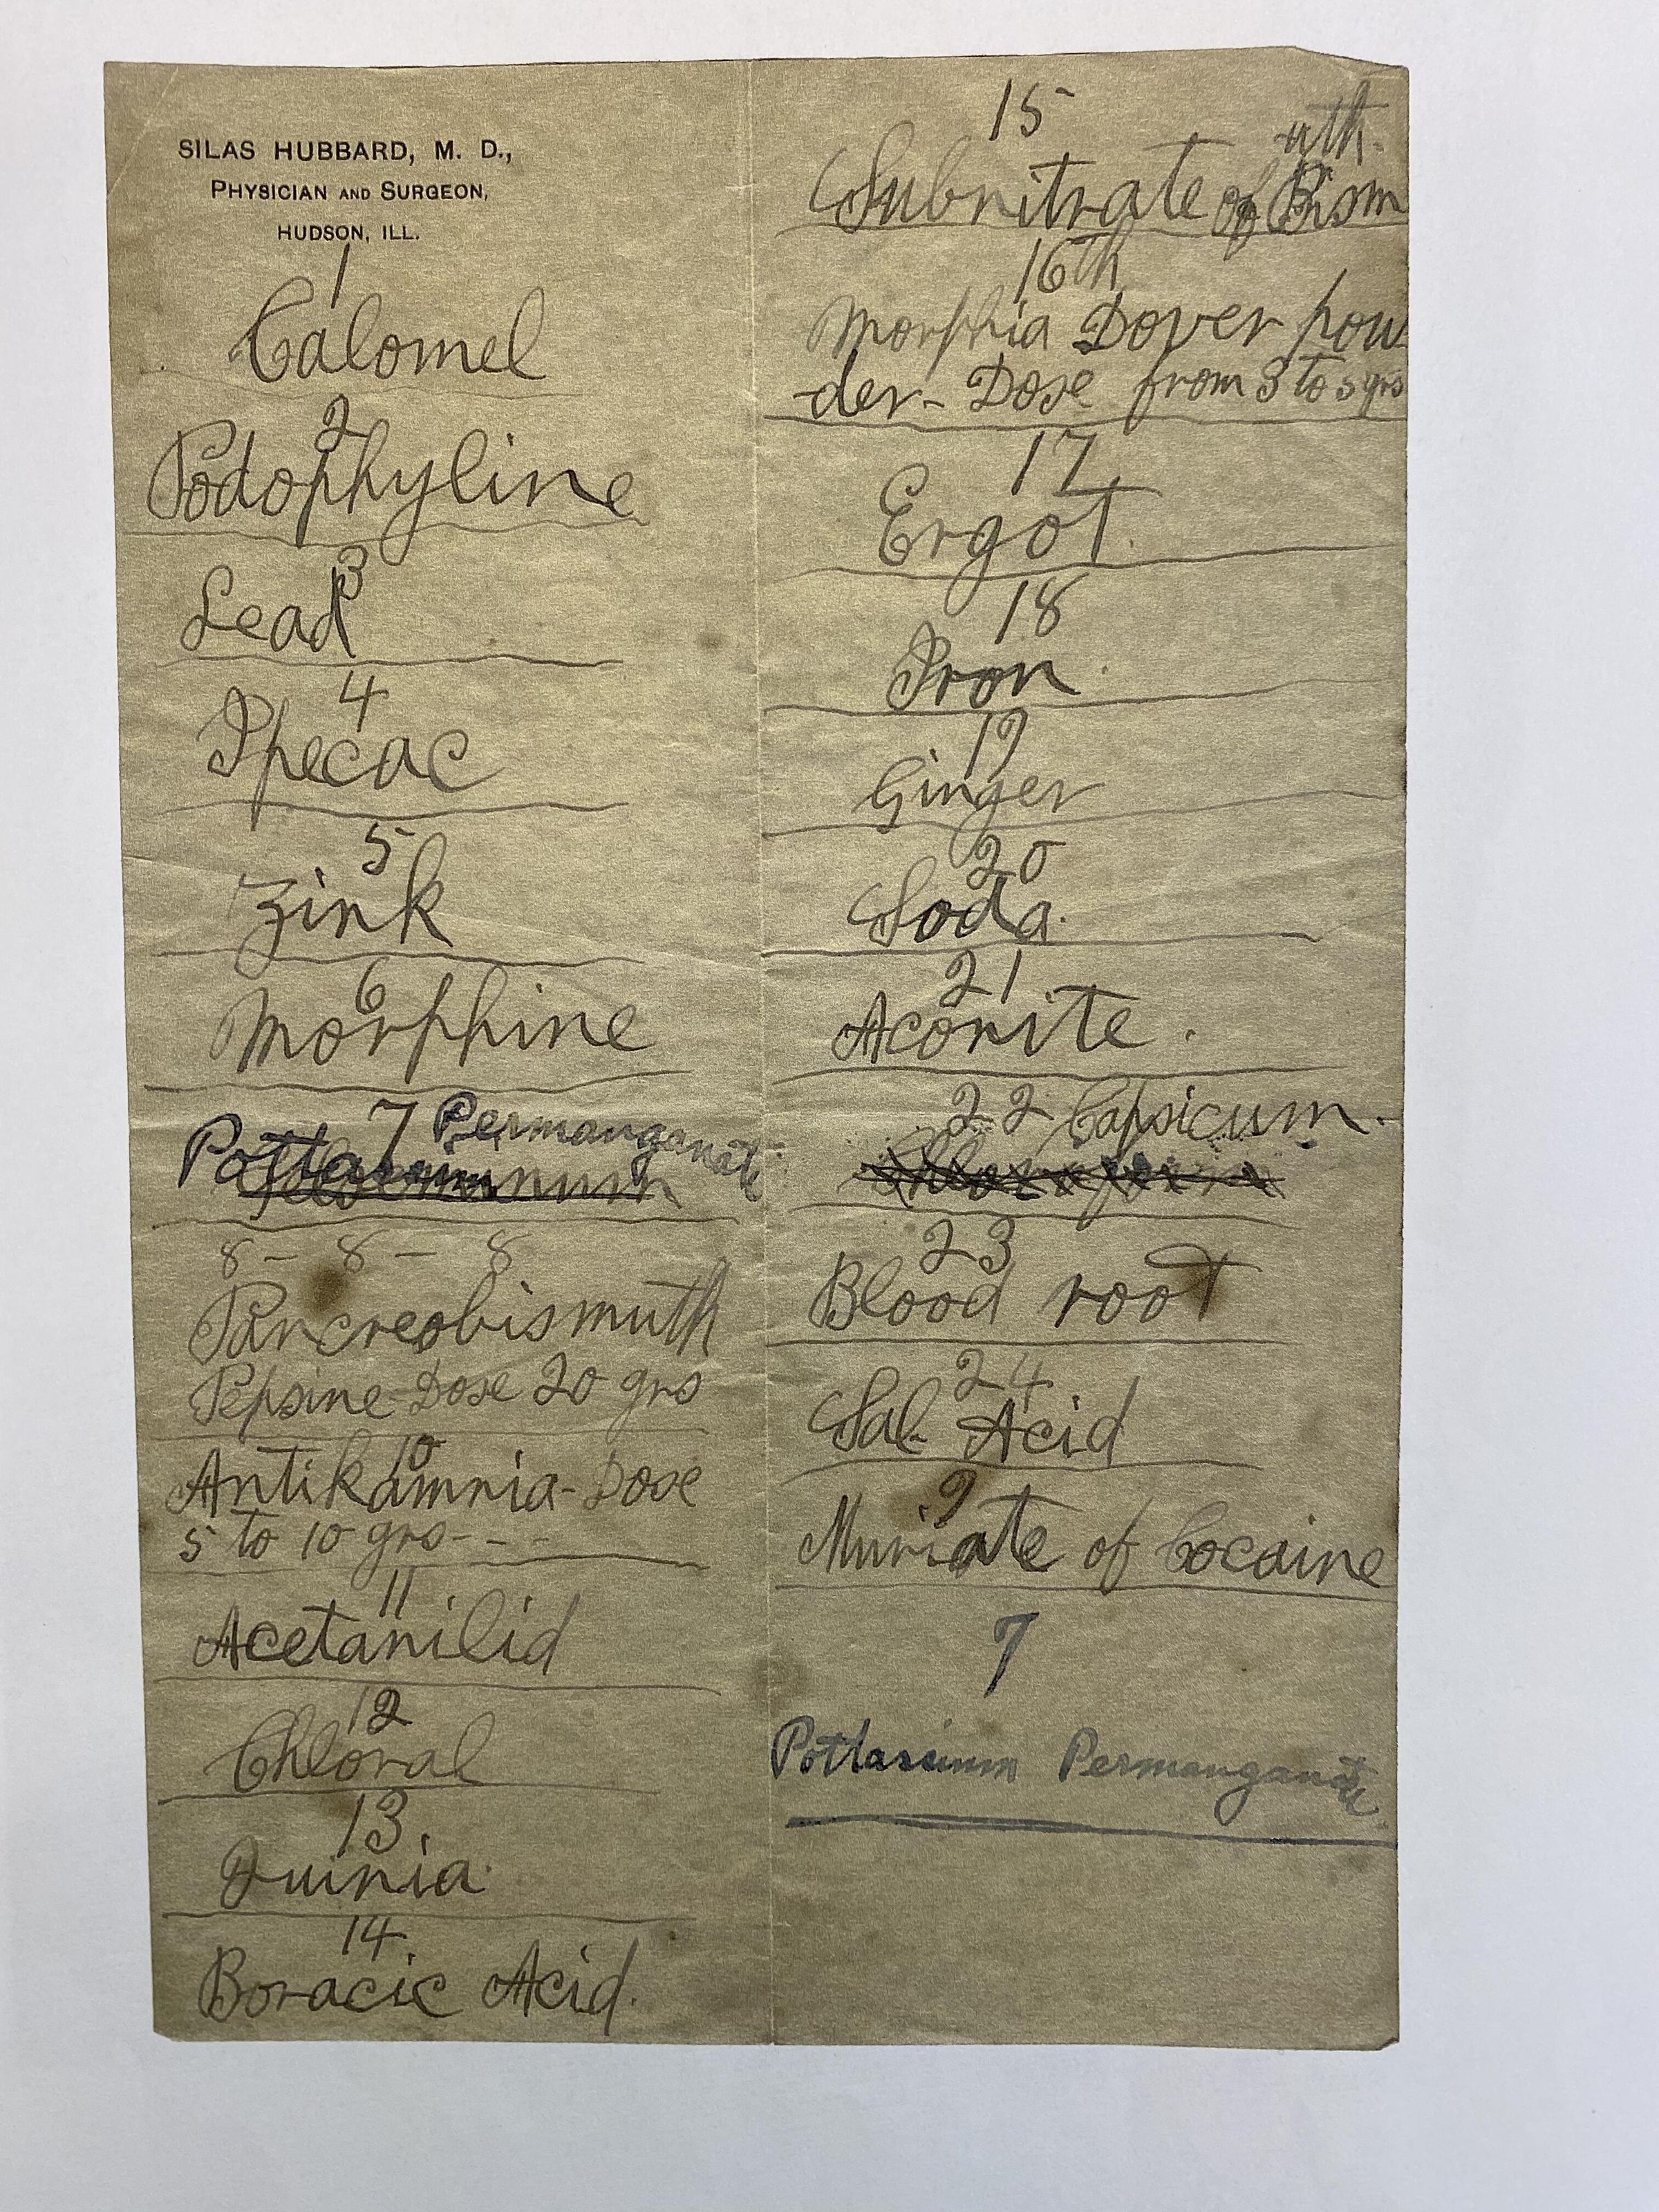 SILAS HUBBARD, M. D.,
PHYSICIAN AND SURGEON,
HUDSON, ILL.
1
Calomel
2
Podophyline
3
Lead
4
Ipecac
5
Zink
6
Morphine
7 Permanganate
Pottassium
8 - 8 - 8
Pancreobismuth
Pepsine Dose 20 grs
10
Antikamnia - Dose
5 to 10 grs - - -
11
Acetanilid
12
Chloral
13.
Quinia.
14.
Boracic Acid.
15
uth.
Subnitrate of Bism
16th
Morphia Dover pow
der - Dose from 3 to 5 grs
17
Ergot.
18
Iron.
19
Ginger
20
Soda.
21
Aconite.
22 Capsicum.
Chloroform
23
Blood root
24
Sal- Acid
9
Muriate of Cocaine
7
Pottassium Permanganate